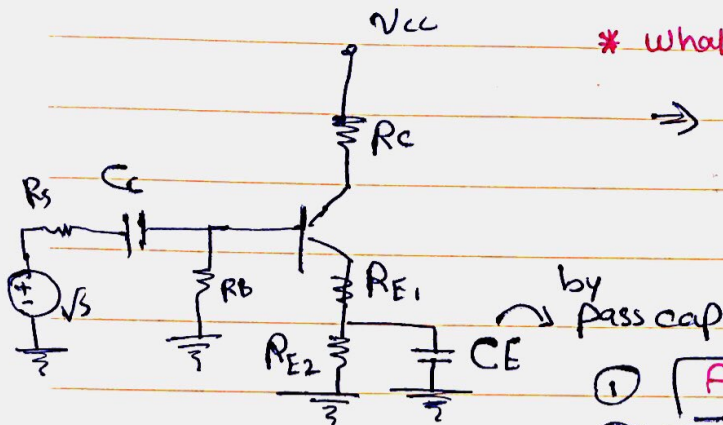 Vcc
* what
⇒
Rc
Rs
Cc
+
-
Vs
RB
RE1
RE2
CE
by
pass cap
①